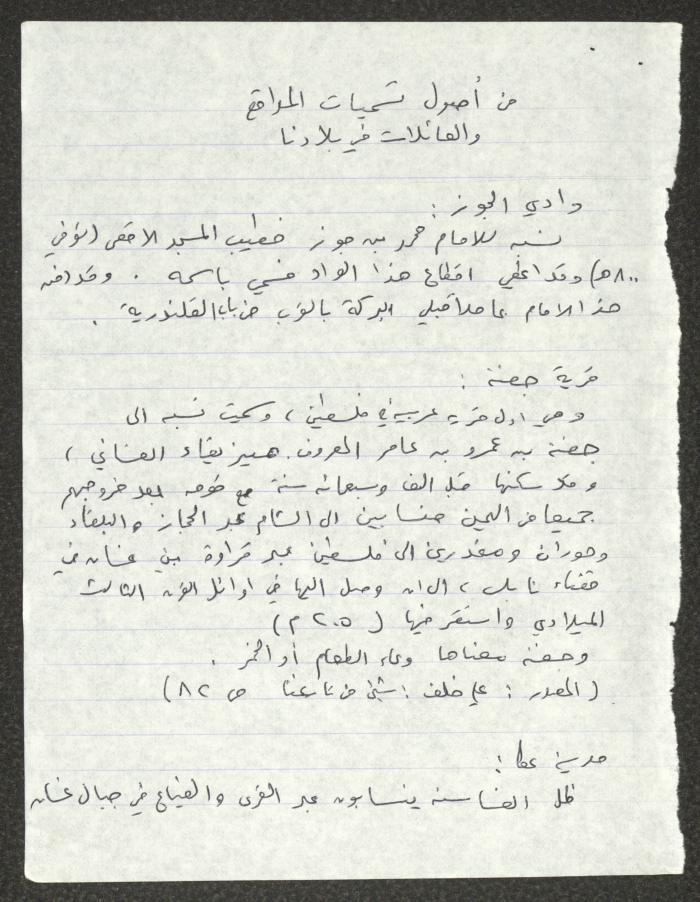 من أصول تسميات المواقع
والعائلات في بلادنا
وادي الجوز :
نسبه للامام محمد بن جوز خطيب المسجد الاقصى (توفي
٨٠٠هـ) وقد اعطي اقطاع هذا الواد فسمي باسمه . وقد اقف
هذا الامام عاملا قبلي البركة بالقرب من باب القلندرية .
قرية جفنة :
وهي اول قريه عربيه في فلسطين ، وسميت نسبه الى
جفنة بن عمرو بن عامر المعروف بمزيقياء الغساني ،
وقد سكنها قبل الف وسبعمائه سنة مع قومه بعد خروجهم
جميعا من اليمن منسابين الى الشام عبر الحجاز والبلقاء
وحوران ومنحدرين الى فلسطين عبر قراوة بني غسان في
قضاء نابلس ، الى ان وصل اليها في اوائل القرن الثالث
الميلادي واستقر فيها ( ٢٠٥ م )
وجفنة معناها وعاء الطعام أو الخمر .
( المصدر : علي خلف : شيء من تاريخنا ص ٨٢ )
مدينة عكا :
ظل الغساسنه ينسابون عبر القرى والضياع في جبال غسان